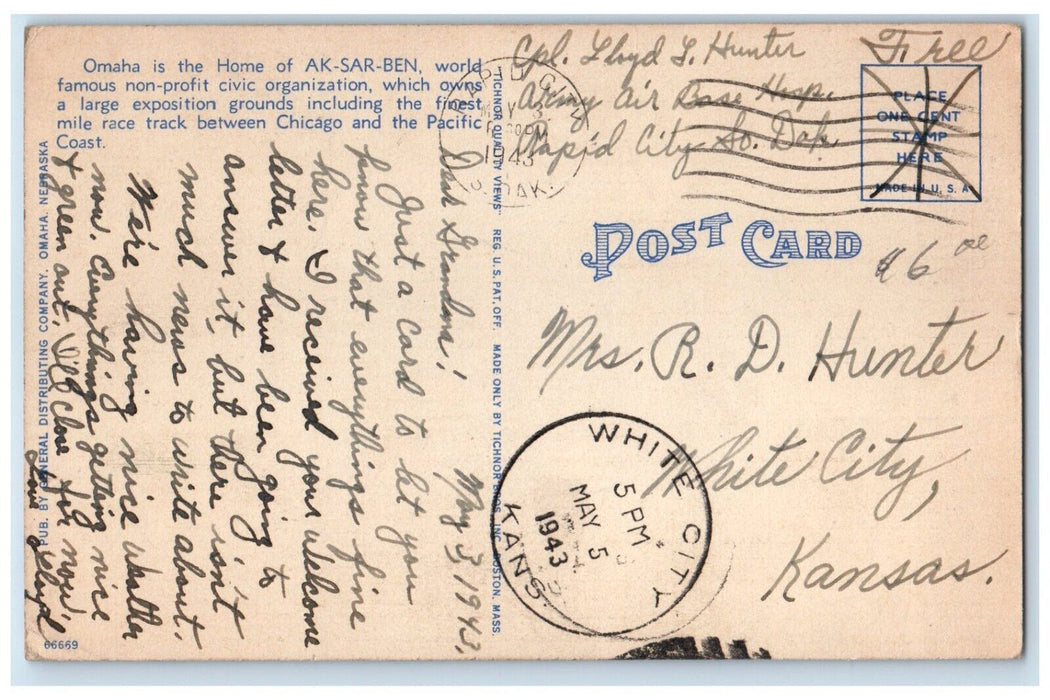 Omaha is the Home of AK-SAR-BEN, world
famous non-profit civic organization, which owns
a large exposition grounds including the finest
mile race track between Chicago and the Pacific
Coast.
Cpl. Lloyd L. Hunter
Army Air Base Hosp.
Rapid City So. Dak.
Free
RAPID CITY
MAY 3
1943
S. DAK.
PLACE
ONE CENT
STAMP
HERE
MADE IN U. S. A.
POST CARD
Mrs. R. D. Hunter
White City,
Kansas.
WHITE CITY
5 PM
MAY 5
1943
KANS.
May 3, 1943,
Dear Grandma!
Just a card to let you
know that everythings fine
here. I received your welcome
letter & have been going to
answer it, but there isn't
much news to write about.
We're having nice weather
now. Everythings getting nice
& green out. I'll close for now,
Love Lloyd
PUB. BY GENERAL DISTRIBUTING COMPANY, OMAHA, NEBRASKA
"TICHNOR QUALITY VIEWS" REG. U. S. PAT. OFF. MADE ONLY BY TICHNOR BROS., INC., BOSTON, MASS.
66669